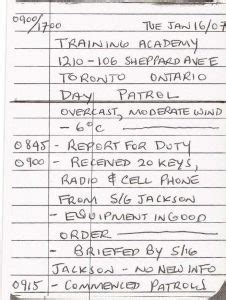 0900/1700 TUE JAN 16/07
TRAINING ACADEMY
1210-106 SHEPPARD AVE E
TORONTO ONTARIO
DAY PATROL
OVERCAST, MODERATE WIND
-6°C
0845 - REPORT FOR DUTY
0900 - RECEIVED 20 KEYS,
RADIO & CELL PHONE
FROM S/G JACKSON
- EQUIPMENT IN GOOD
ORDER
- BRIEFED BY S/G
JACKSON - NO NEW INFO
0915 - COMMENCED PATROLS